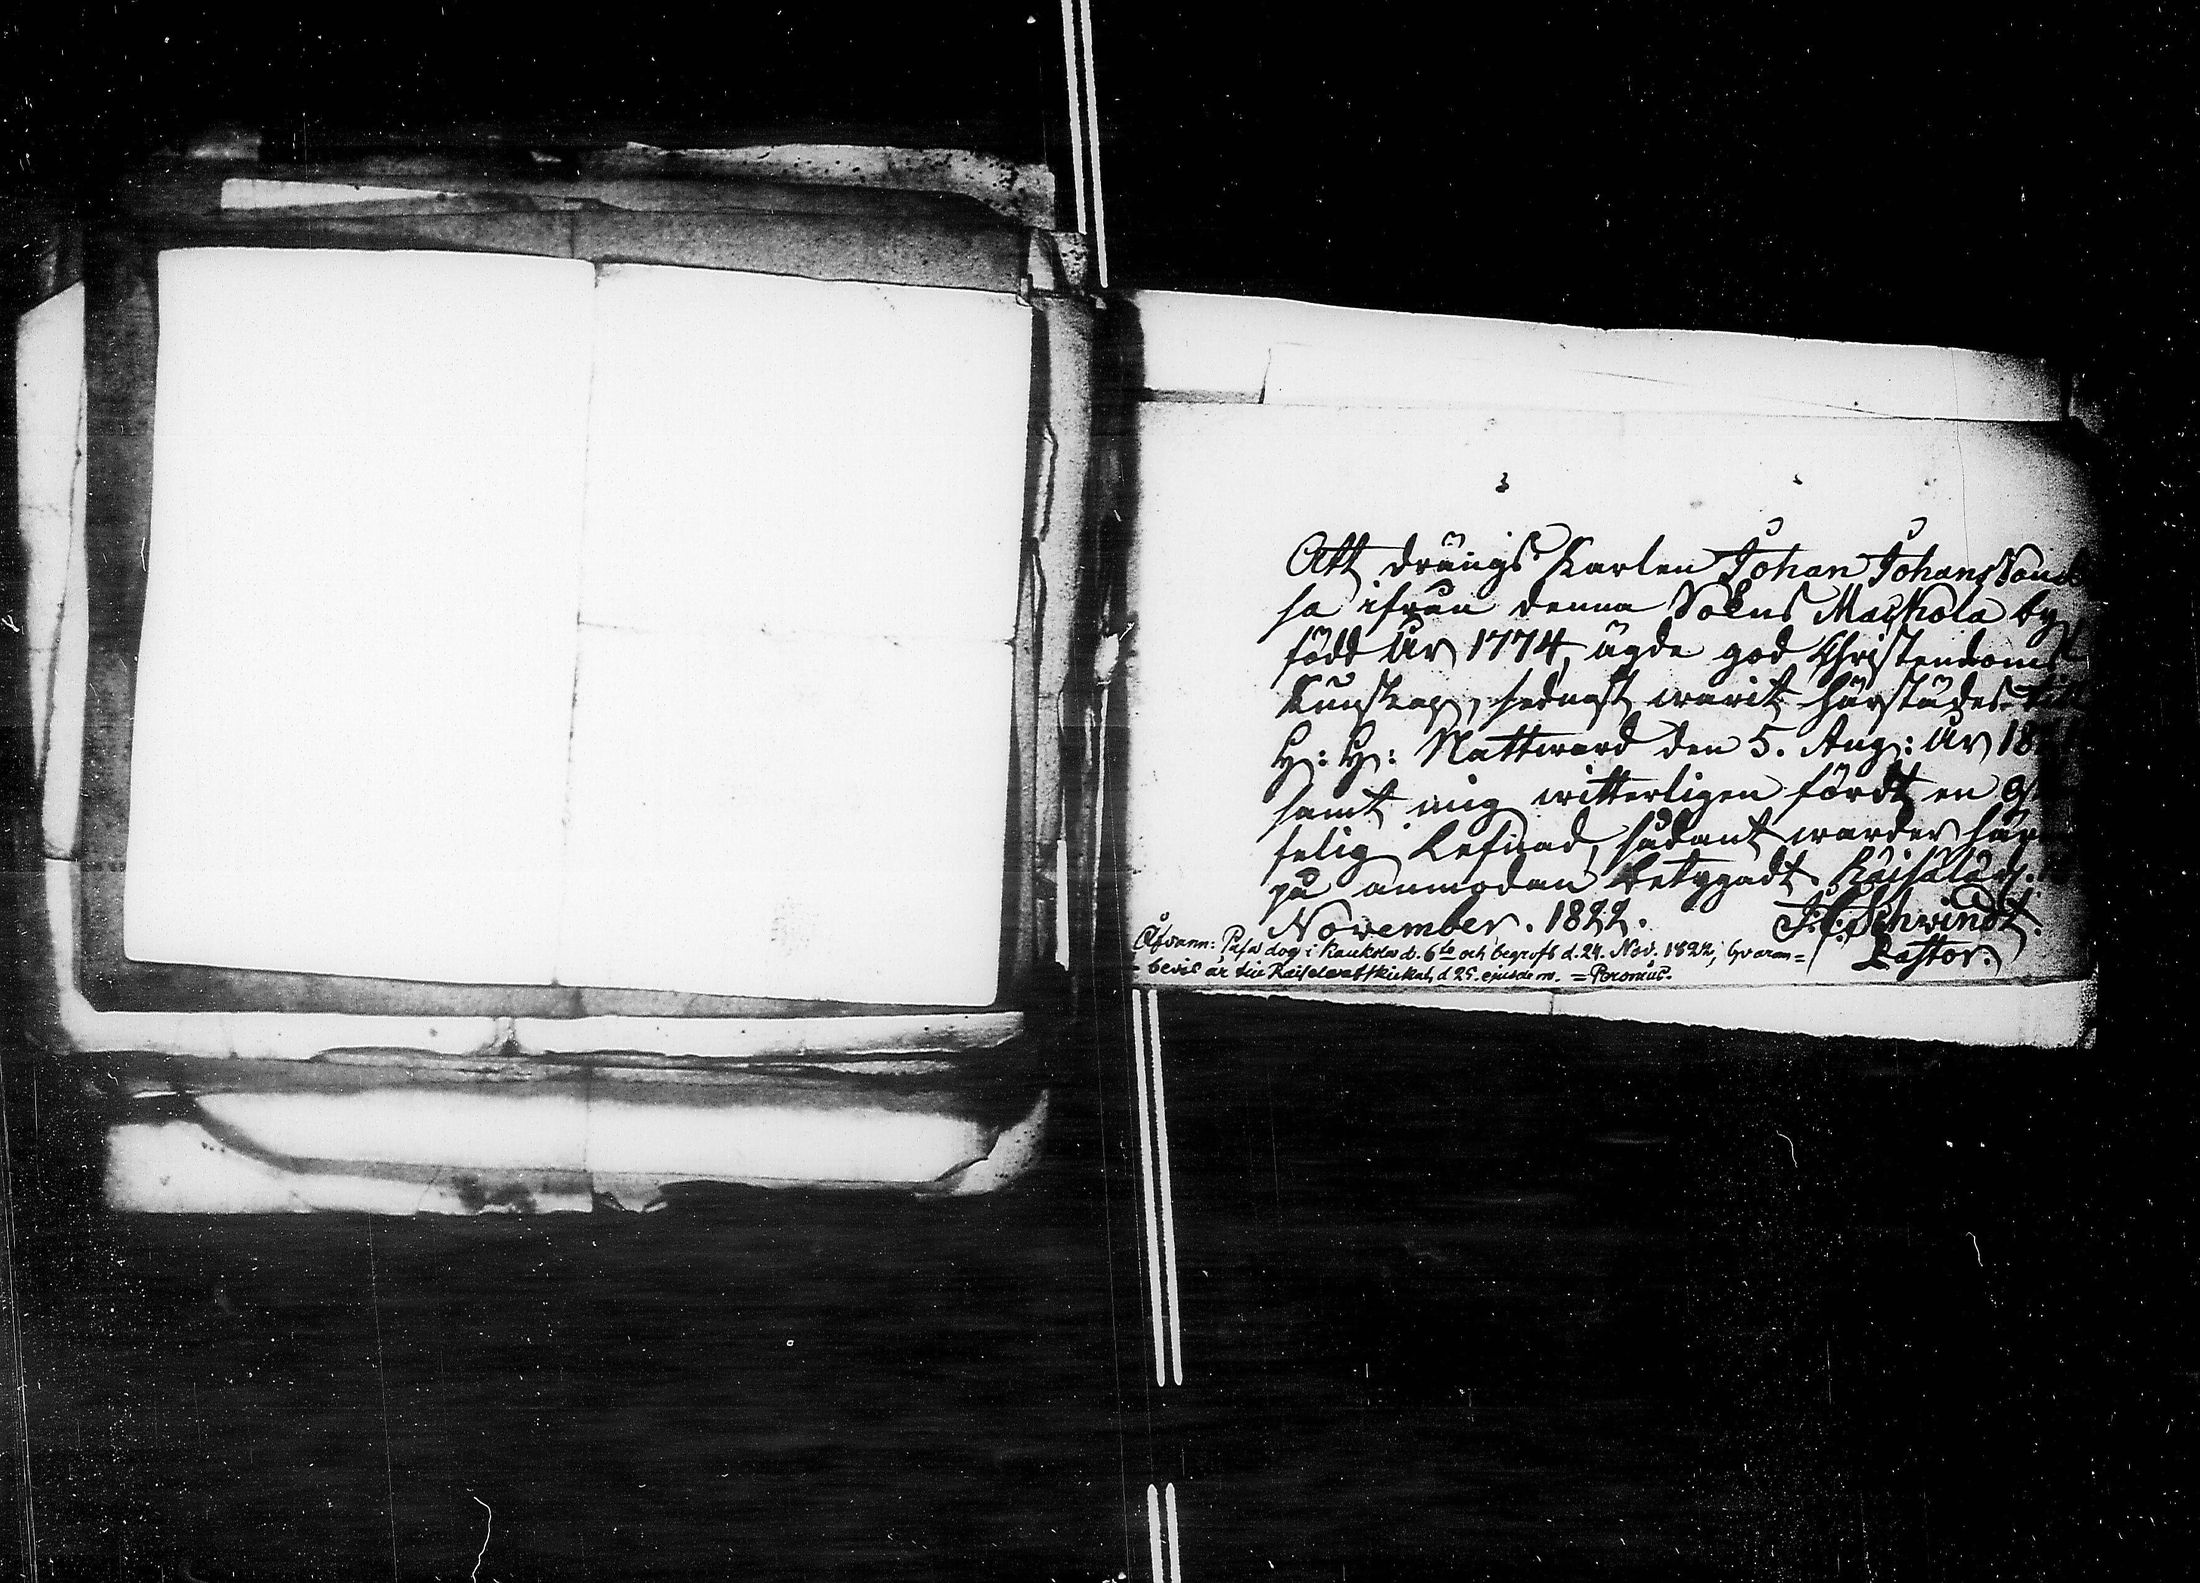 Att drängs Karlen Johan Johans Son
sa ifrån denna Sokns Mackola by
född år 1774, ägde god Christendoms
Kunskap, sednast warit härstädes till
H: H: Nattward den 5. Aug: år 18
samt mig witterligen fördt en
selig Lefnad, sådant warder här
på anmodan betygadt. Räisälä d.
November. 1822. J. C. Schwindt.
Pastor.
Ofvann: Pafa dog i Kaukola d. 6te och begrofs d. 24. Nov. 1822, hvarom
bevis är till Räisälä afskickat, d 25. ejusdem. = Poronius.